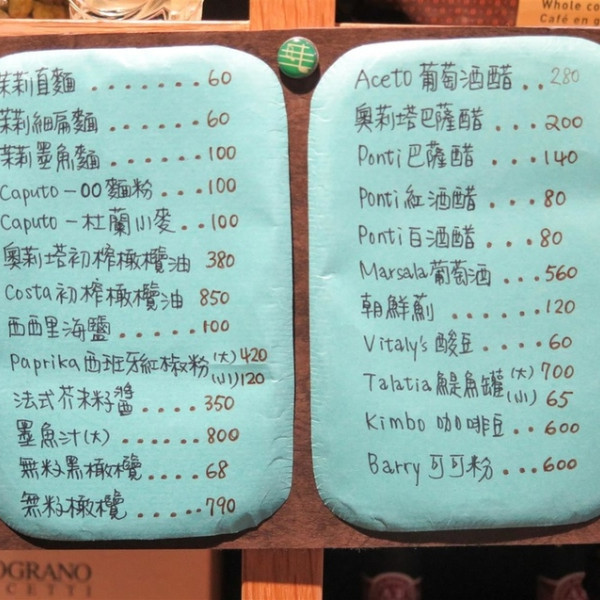 Whole co
Café en g
茉莉直麵 ....... 60
茉莉細扁麵 ...... 60
茉莉墨魚麵 ...... 100
Caputo-00麵粉 ... 100
Caputo-杜蘭小麥 .. 100
奧莉塔初榨橄欖油 380
Costa初榨橄欖油 850
西西里海鹽 ..... 100
Paprika西班牙紅椒粉 (大) 420
(小) 120
法式芥籽醬 .... 350
墨魚汁(大) ...... 800
無籽黑橄欖 .... 68
無籽橄欖 ...... 790
Aceto 葡萄酒醋 .. 280
奧莉塔巴薩醋 ... 200
Ponti巴薩醋 ... 140
Ponti紅酒醋 ... 80
Ponti白酒醋 ... 80
Marsala葡萄酒 ... 560
朝鮮薊 ....... 120
Vitaly's 酸豆 .... 60
Talatia鯷魚罐 (大) 700
(小) 65
Kimbo 咖啡豆 .. 600
Barry可可粉 ... 600
OGRANO
CETTI